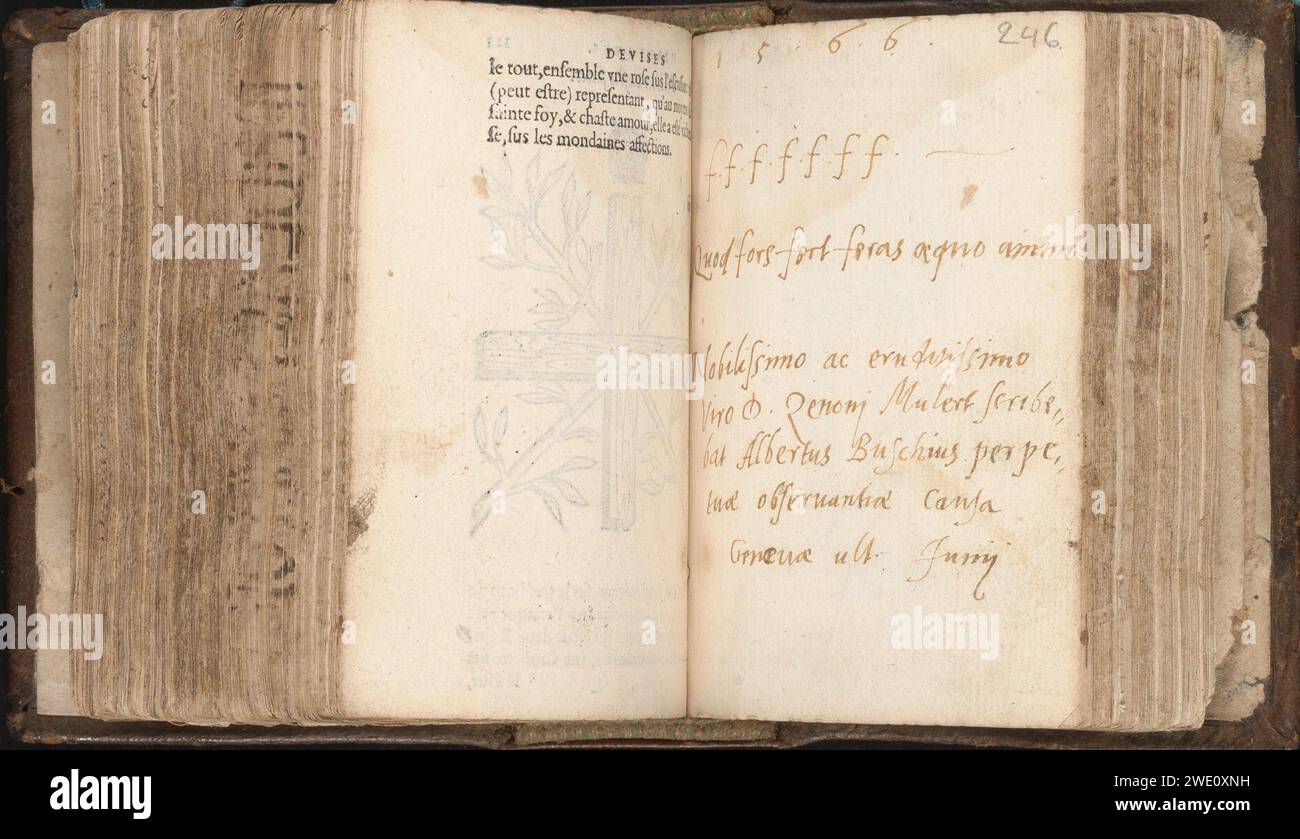 DEVISES
le tout, enſemble vne roſe ſus l'eſtenſion
(peut eſtre) repreſentant, qu'au moyen
ſainte foy, & chaſte amour, elle a eſté
ſe, ſus les mondaines affections.
246.
1 5 6 6.
f. f. f. f. f. f. f.
Quod fors fert feras æquo animo
Nobiliſsimo ac eruditiſsimo
Viro D. Zenoni Mulert ſcribe„
bat Albertus Buſchius perpe„
tuæ obſervantiæ cauſa
Genevæ ult. Junij
alamy
alamy
alamy
Image ID: 2WE0XNH
www.alamy.com